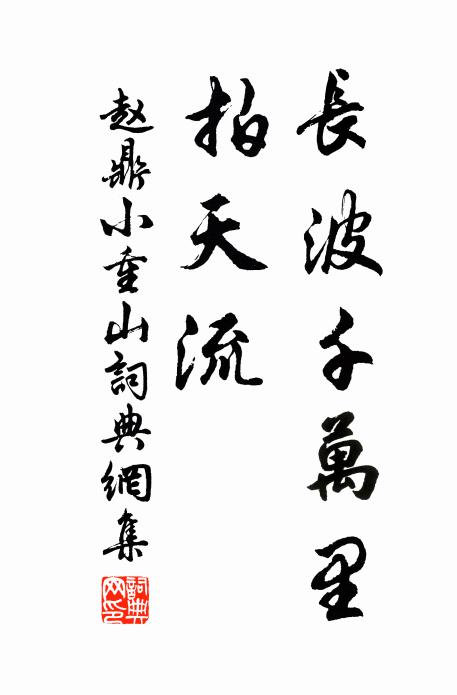 長波千萬里
拍天流
赵鼎小重山詞典網集
詞典网印